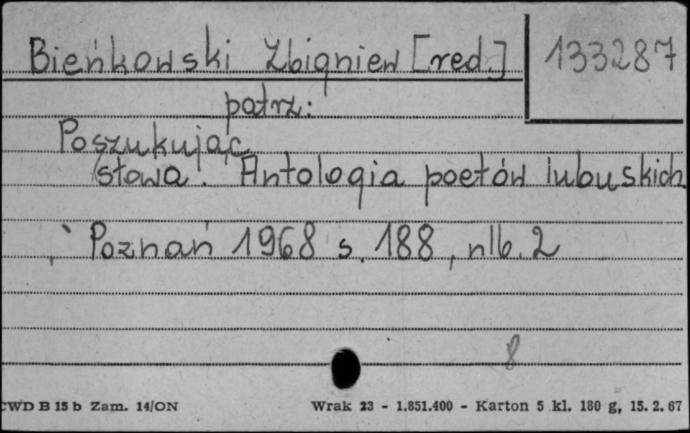 Bieńkowski Zbigniew [red.]
133287
patrz:
Poszukując
słowa. Antologia poetów lubuskich.
Poznań 1968 s. 188, nlb. 2
8
CWD B 15 b Zam. 14/ON
Wrak 23 - 1.851.400 - Karton 5 kl. 180 g, 15. 2. 67